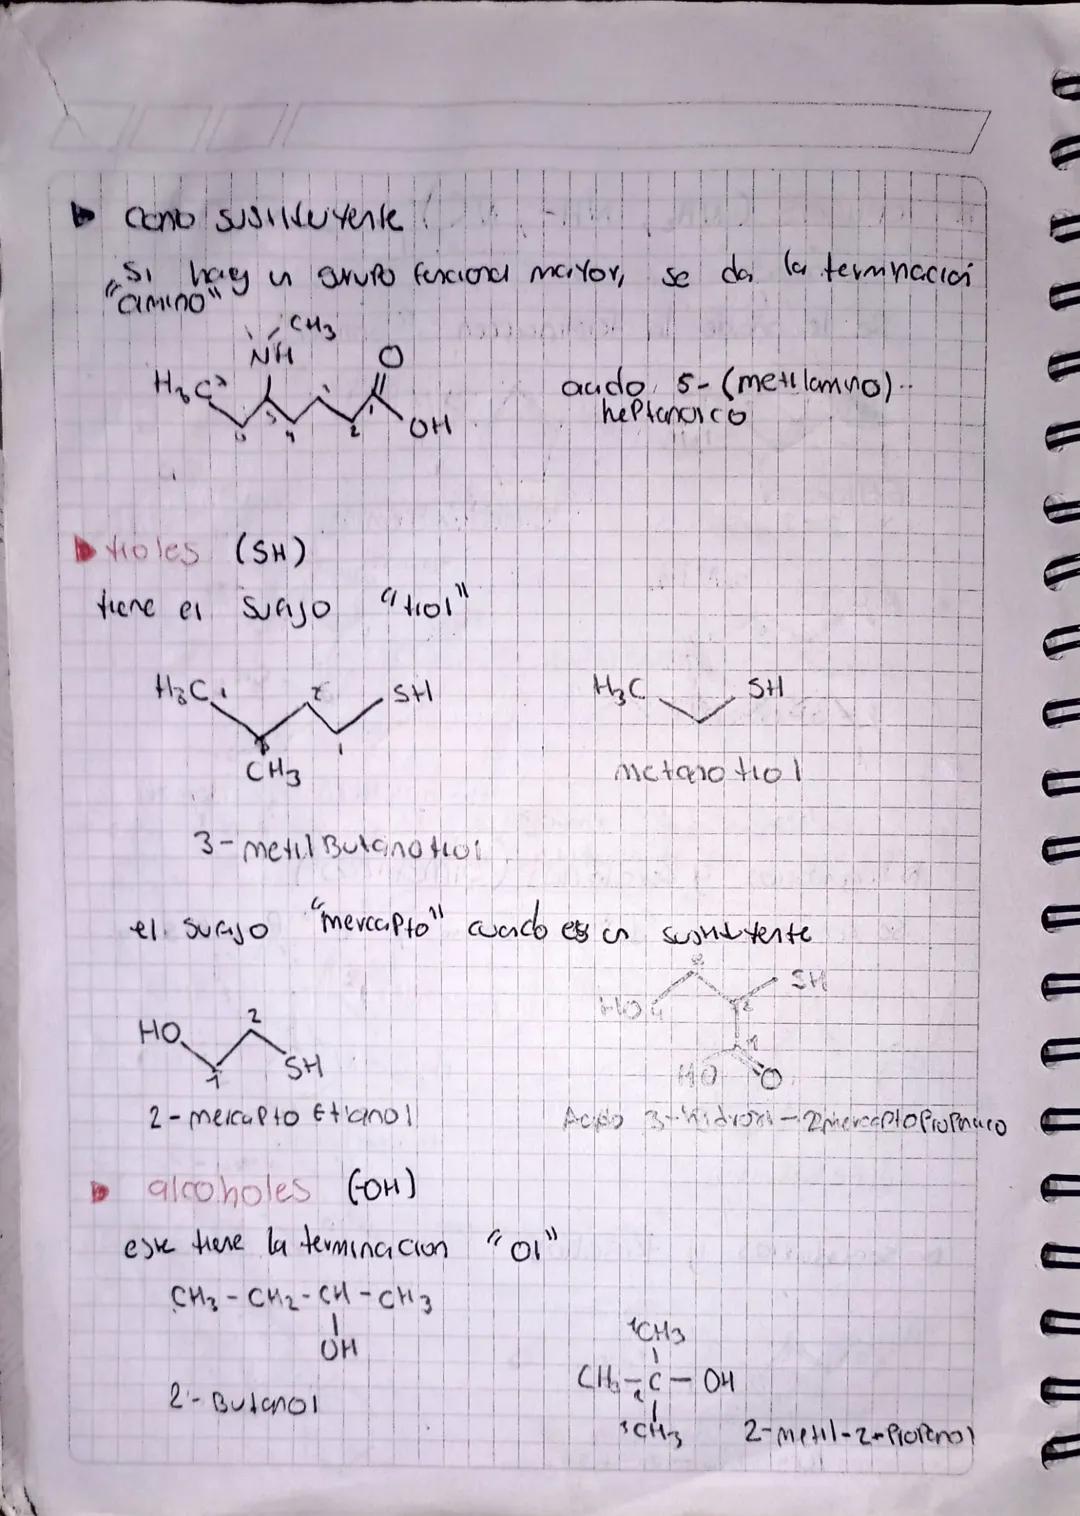 como sustituyente
Si hay un grupo funcional mayor, se da la terminación
"amino"
CH3
NH
O
H3C 7
6 5 4 2 1
OH
acido 5-(metilamino)-
heptanoico
tioles (SH)
tiene el sufijo "tiol"
H3C 2 SH
1
CH3
H3C SH
metanotiol
3-metilButanotiol
el sufijo "mercapto" cuando es un sustituyente
HO 2
1 SH
2-mercapto Etanol
3 SH
HO 2
1
HO O
Acido 3-hidroxi-2mercaptopropanoico
alcoholes (-OH)
este tiene la terminacion "ol"
CH3-CH2-CH-CH3
OH
2-Butanol
1CH3
CH3-C-OH
2
3CH3
2-metil-2-Propanol